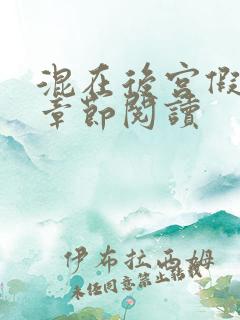 混在後宮假
章節閱讀
伊布拉西姆
未经同意禁止转载